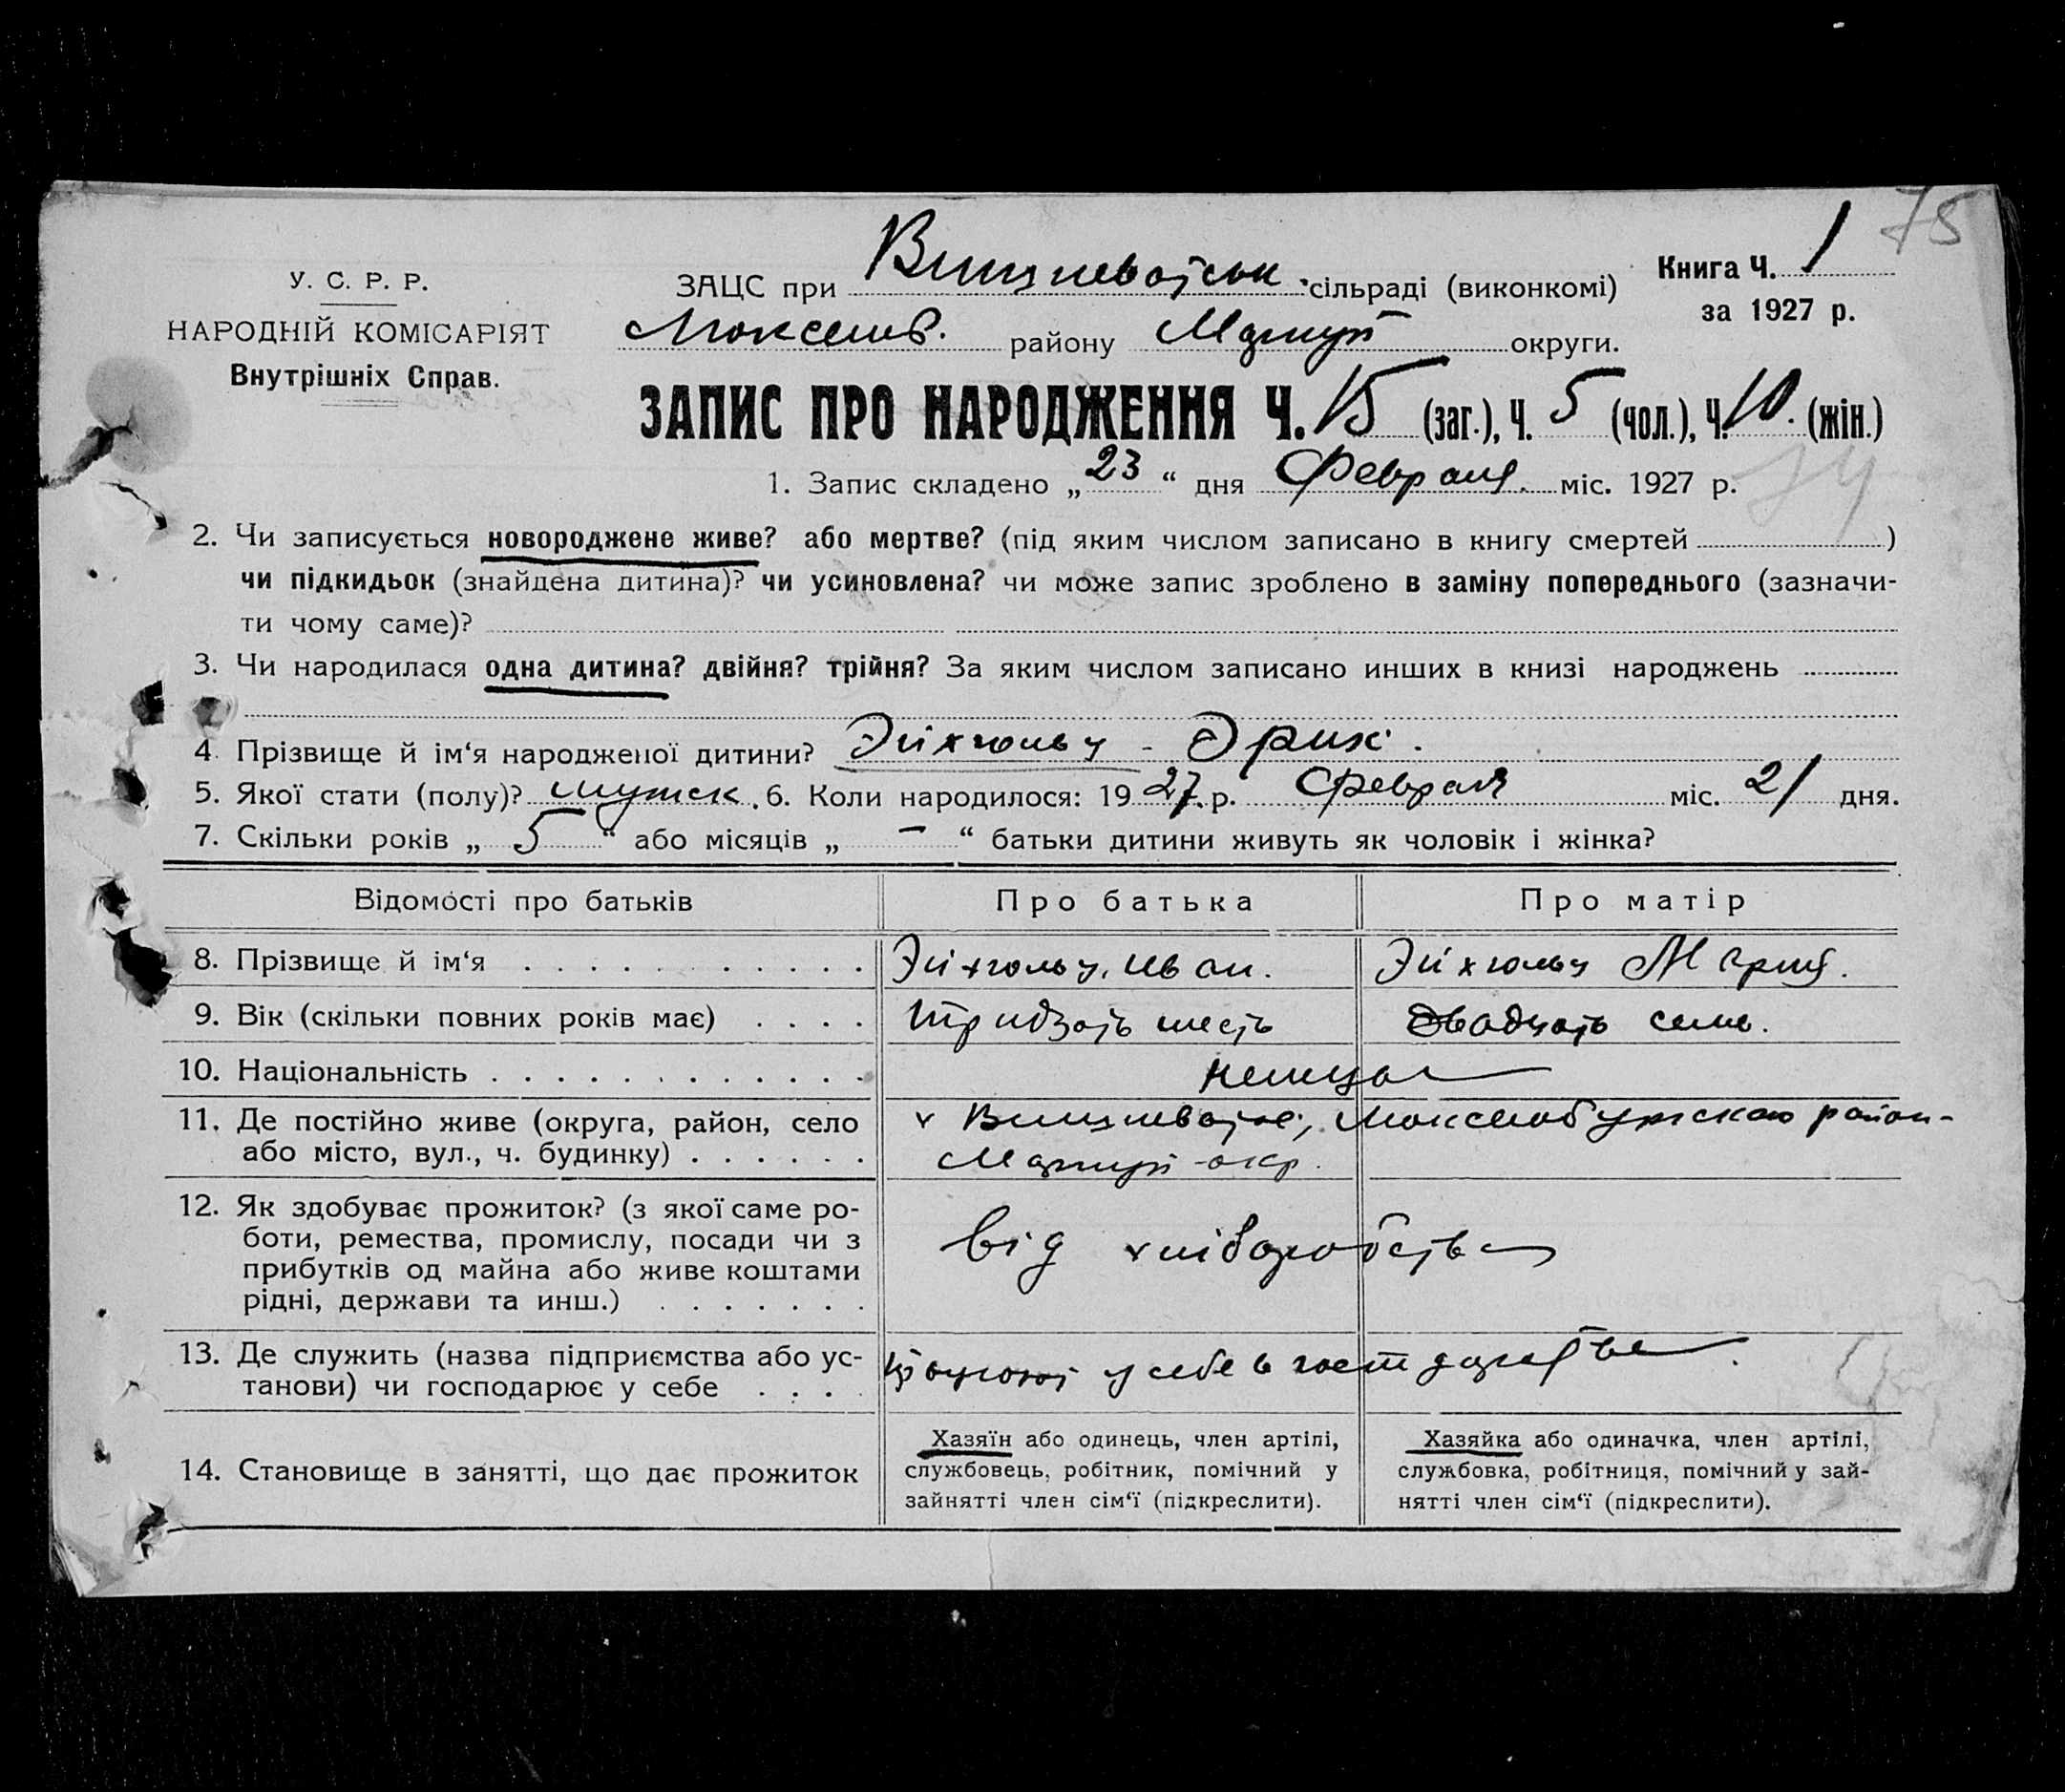 75
У. С. Р. Р.
НАРОДНІЙ КОМІСАРІЯТ
Внутрішніх Справ.
ЗАЦС при Вишневатськ. сільраді (виконкомі)
Люксемб. району Маріуп округи.
Книга Ч. 1
за 1927 р.
ЗАПИС ПРО НАРОДЖЕННЯ Ч. 15 (заг.), Ч. 5 (чол.), Ч. 10. (жін.)
1. Запис складено „ 23 “ дня Февраля. міс. 1927 р.
74
2. Чи записується новороджене живе? або мертве? (під яким числом записано в книгу смертей )
чи підкидьок (знайдена дитина)? чи усиновлена? чи може запис зроблено в заміну попереднього (зазначи-
ти чому саме)?
3. Чи народилася одна дитина? двійня? трійня? За яким числом записано инших в книзі народжень
4. Прізвище й ім‘я народженої дитини? Эйхгольц - Эрих.
5. Якої стати (полу)? мужск. 6. Коли народилося: 1927 р. Февраля міс. 21 дня.
7. Скільки років „ 5 “ або місяців „ – “ батьки дитини живуть як чоловік і жінка?
Відомості про батьків Про батька Про матір
8. Прізвище й ім‘я Эйхгольц. Иван. Эйхгольц Мария.
9. Вік (скільки повних років має) тридцать шесть двадцать семь.
10. Національність немцы
11. Де постійно живе (округа, район, село х Вишневатое, Люксембургского район-
або місто, вул., ч. будинку) Маріуп окр.
12. Як здобуває прожиток? (з якої саме ро-
боти, ремества, промислу, посади чи з від хліборобства
прибутків од майна або живе коштами
рідні, держави та инш.)
13. Де служить (назва підприємства або ус- у себе в
танови) чи господарює у себе
14. Становище в занятті, що дає прожиток
Хазяїн або одинець, член артілі,
службовець, робітник, помічний у
зайнятті член сім‘ї (підкреслити).
Хазяйка або одиначка, член артілі,
службовка, робітниця, помічний у зай-
нятті член сім‘ї (підкреслити).